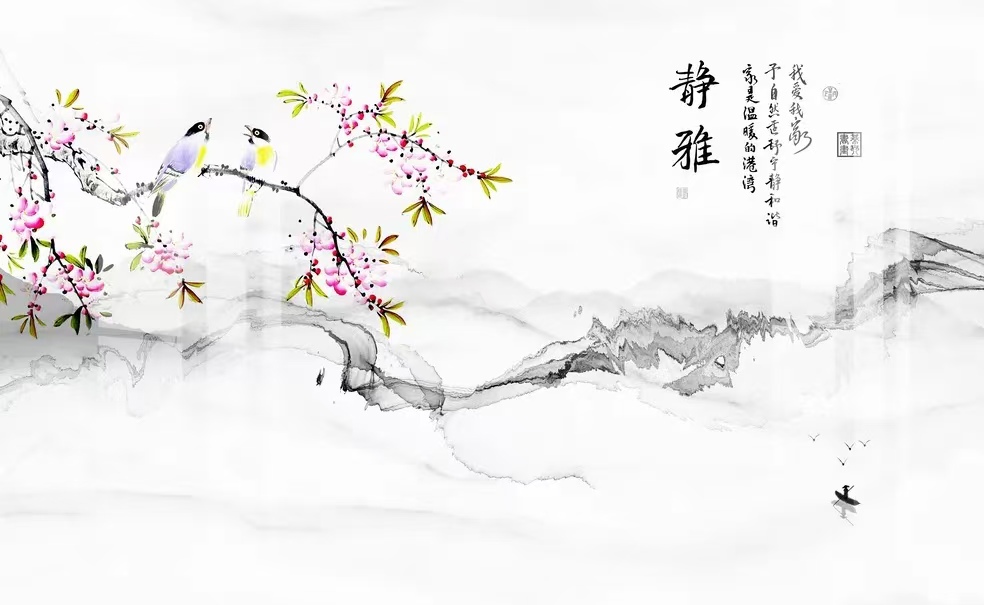 我爱我家
于自然舒宁静和谐
家是温暖的港湾
静雅